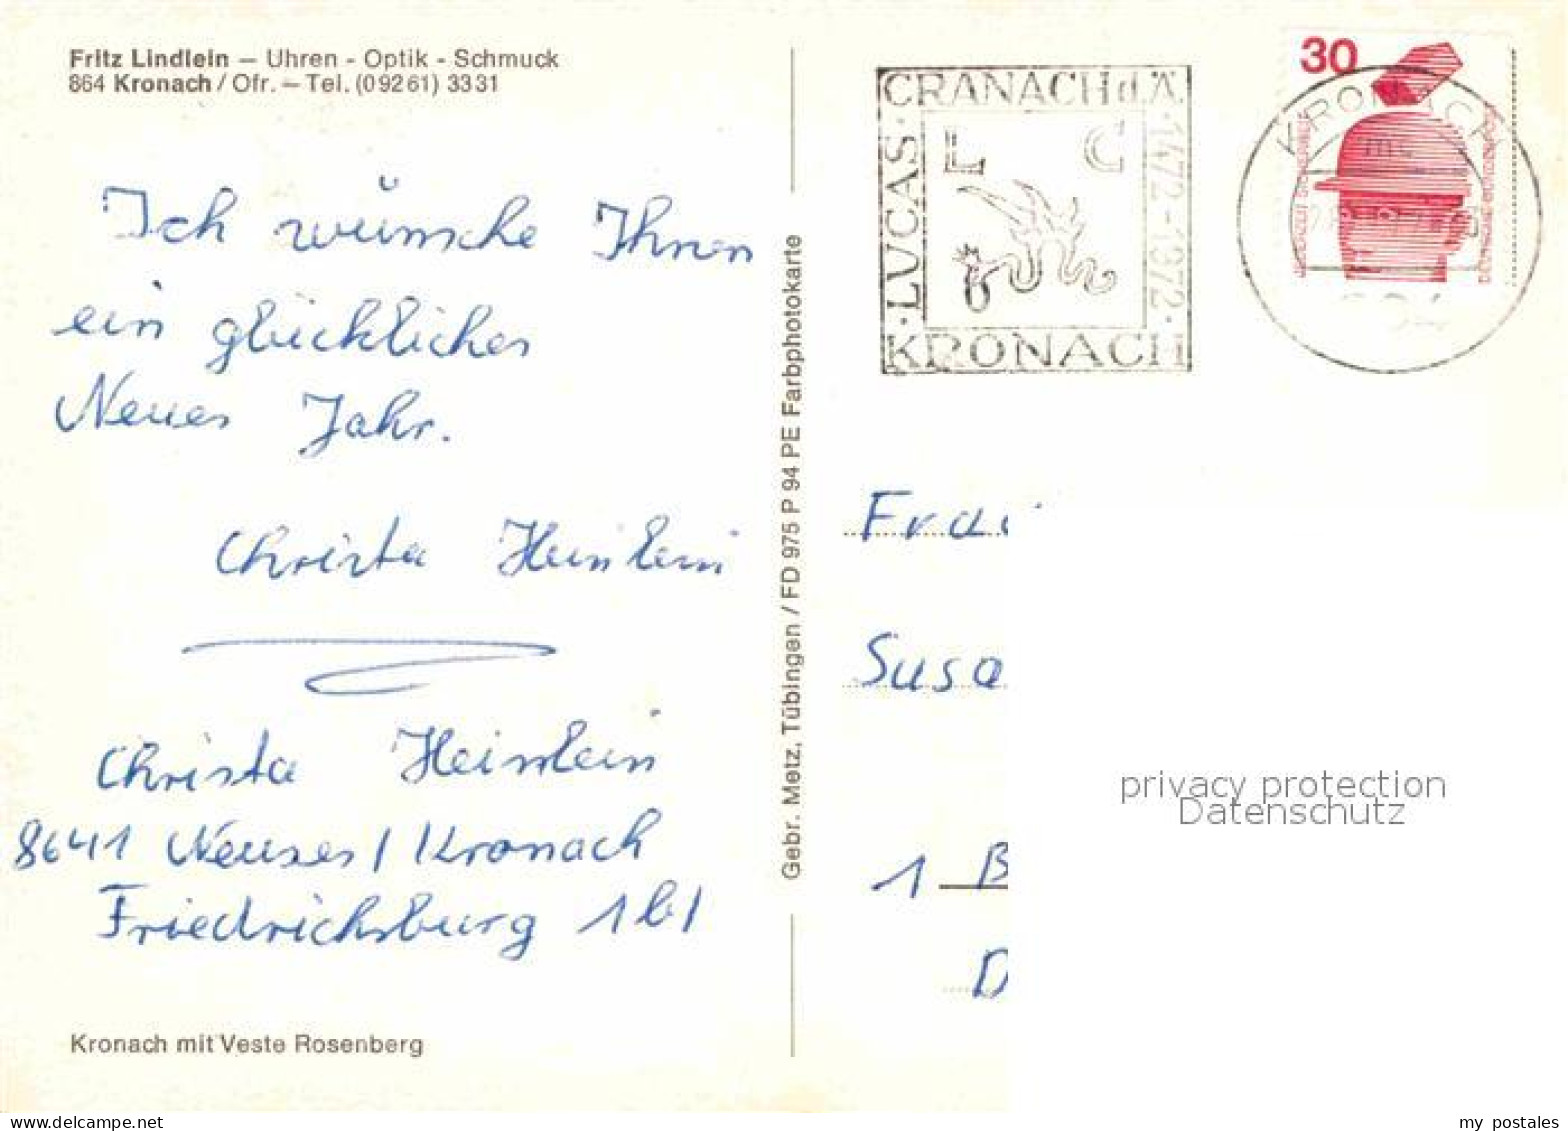 Fritz Lindlein — Uhren - Optik - Schmuck
864 Kronach / Ofr. — Tel. (09261) 3331
Ich wünsche Ihnen
ein glückliches
Neues Jahr.
Christa Heinlein
Christa Heinlein
8641 Neuses / Kronach
Friedrichsburg 1b/
Kronach mit Veste Rosenberg
Gebr. Metz, Tübingen / FD 975 P 94 PE Farbphotokarte
LUCAS · CRANACH d Ä · 1472 - 1972 ·
KRONACH
L C
30
KRONACH
Frau
Susa
1 B
D
privacy protection
Datenschutz
my postales